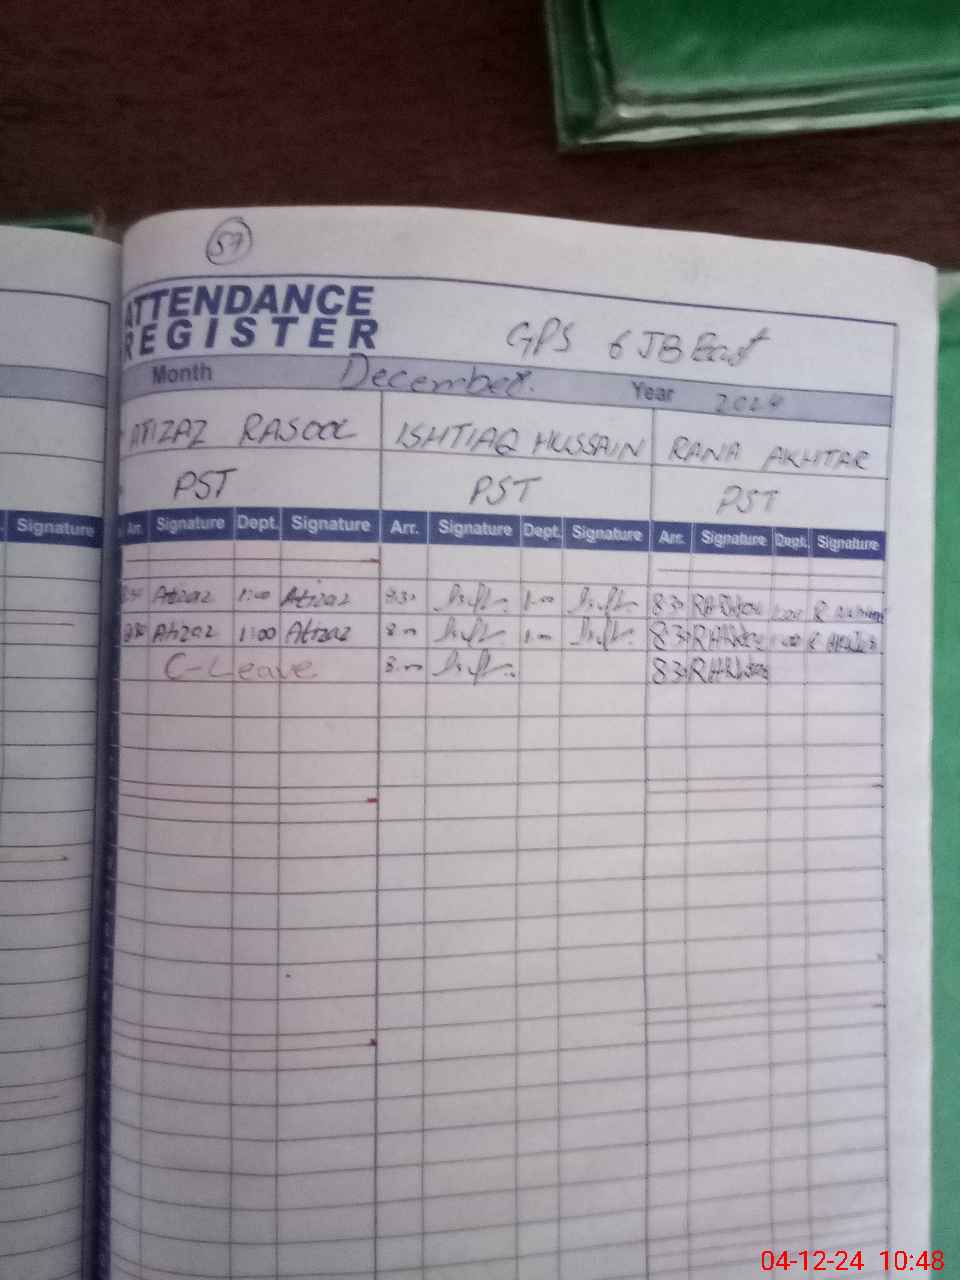 57
ATTENDANCE
REGISTER
GPS 6 JB East
Month December. Year 2024
ATIZAZ RASOOL ISHTIAQ HUSSAIN RANA AKHTAR
PST PST PST
Signature Arr. Signature Dept. Signature Arr. Signature Dept. Signature Arr. Signature Dept. Signature
Atizaz 1:00 Atizaz 8:30 1:00 8:30 1:00
8:30 Atizaz 1:00 Atizaz 8:00 1:00 8:30 1:00
C-Leave 8:00 8:30
04-12-24 10:48